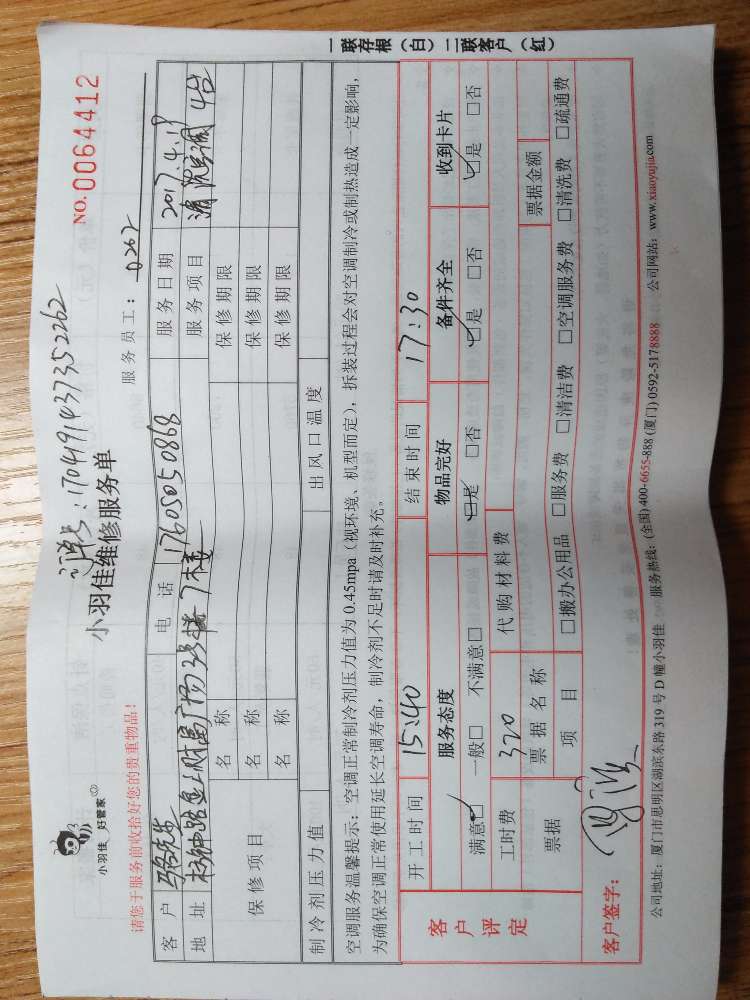 NO.0064412
订单号:17049143735 2262
小羽佳 好管家
小羽佳维修服务单
请您于服务前收拾好您的贵重物品!
服务员工: 0262
客户 骆先生 电话 17605050868 服务日期 2017.4.19
地址 服务项目 清洗空调 4台
保修项目 名称 保修期限
名称 保修期限
名称 保修期限
制冷剂压力值 出风口温度
空调服务温馨提示:空调正常制冷剂压力值为0.45mpa(视环境、机型而定),拆装过程会对空调制冷或制热造成一定影响,
为确保空调正常使用延长空调寿命,制冷剂不足时请及时补充。
客户评定
开工时间 15:40 结束时间 17:30
服务态度 物品完好 备件齐全 收到卡片
满意□ 一般□ 不满意□ □是 □否 □是 □否 □是 □否
工时费 320 代购材料费
票据 票据名称 票据金额
项目 □搬办公用品 □服务费 □清洁费 □空调服务费 □清洗费 □疏通费
客户签字:
公司地址:厦门市思明区湖滨东路319号D幢小羽佳 服务热线:(全国)400-6655-888 (厦门)0592-5178888 公司网站:www.xiaoyujia.com
一联存根(白)二联客户(红)